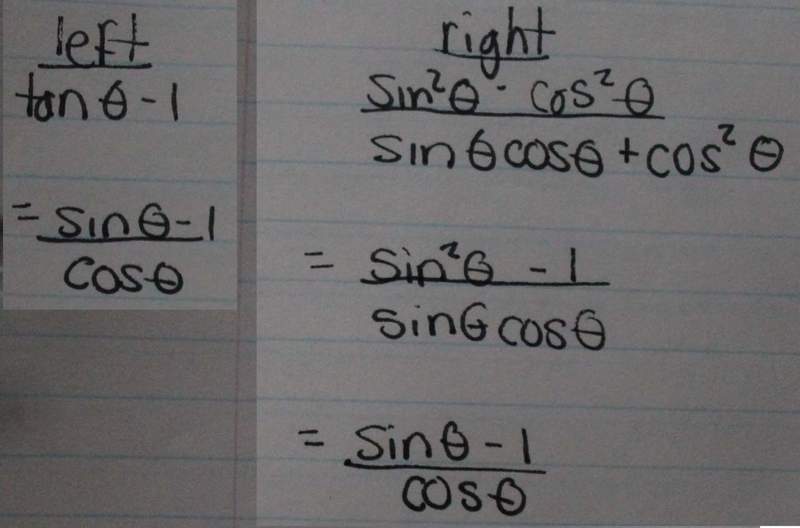 left
tan θ - 1
= sin θ - 1
cos θ
right
sin²θ - cos²θ
sin θ cos θ + cos² θ
= sin²θ - 1
sin θ cos θ
= sin θ - 1
cos θ